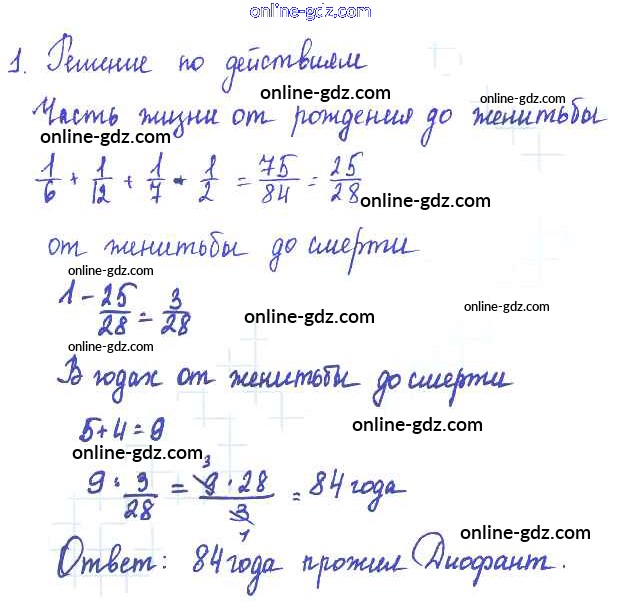 online-gdz.com
1. Решение по действиям
online-gdz.com
Часть жизни от рождения до женитьбы
online-gdz.com
online-gdz.com
1/6 + 1/12 + 1/7 + 1/2 = 75/84 = 25/28
online-gdz.com
от женитьбы до смерти
online-gdz.com
1 - 25/28 = 3/28
online-gdz.com
online-gdz.com
online-gdz.com
В годах от женитьбы до смерти
online-gdz.com
5+4=9
online-gdz.com
online-gdz.com
9 : 3/28 = 9 3 · 28 / 3 1 = 84 года
online-gdz.com
Ответ: 84 года прожил Диофант.